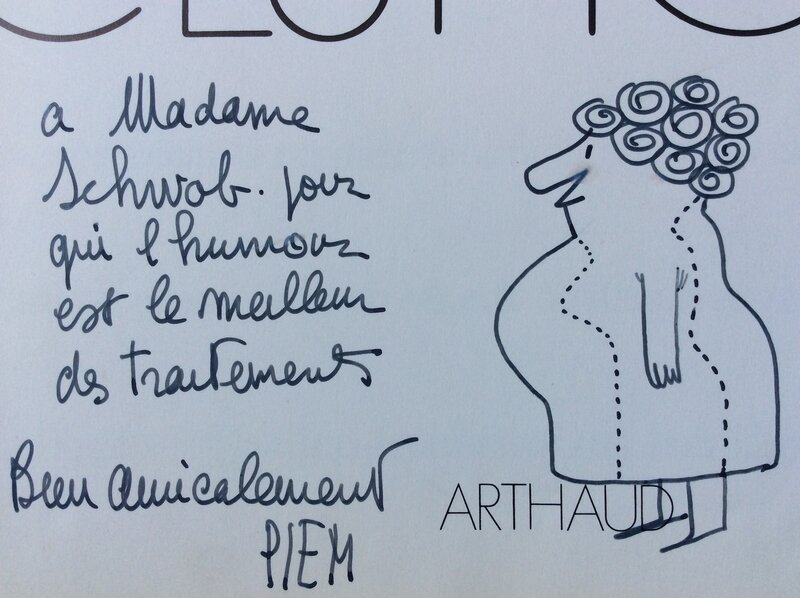 a Madame
Schwob. pour
qui l'humour
est le meilleur
des traitements
Bien amicalement
PIEM
ARTHAUD